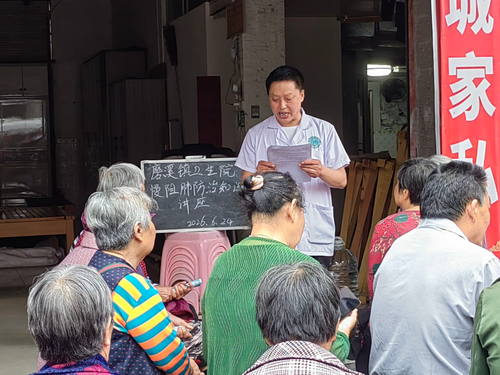 磨溪镇卫生院
慢阻肺防治知识
讲座
2025.6.24
城
家
私